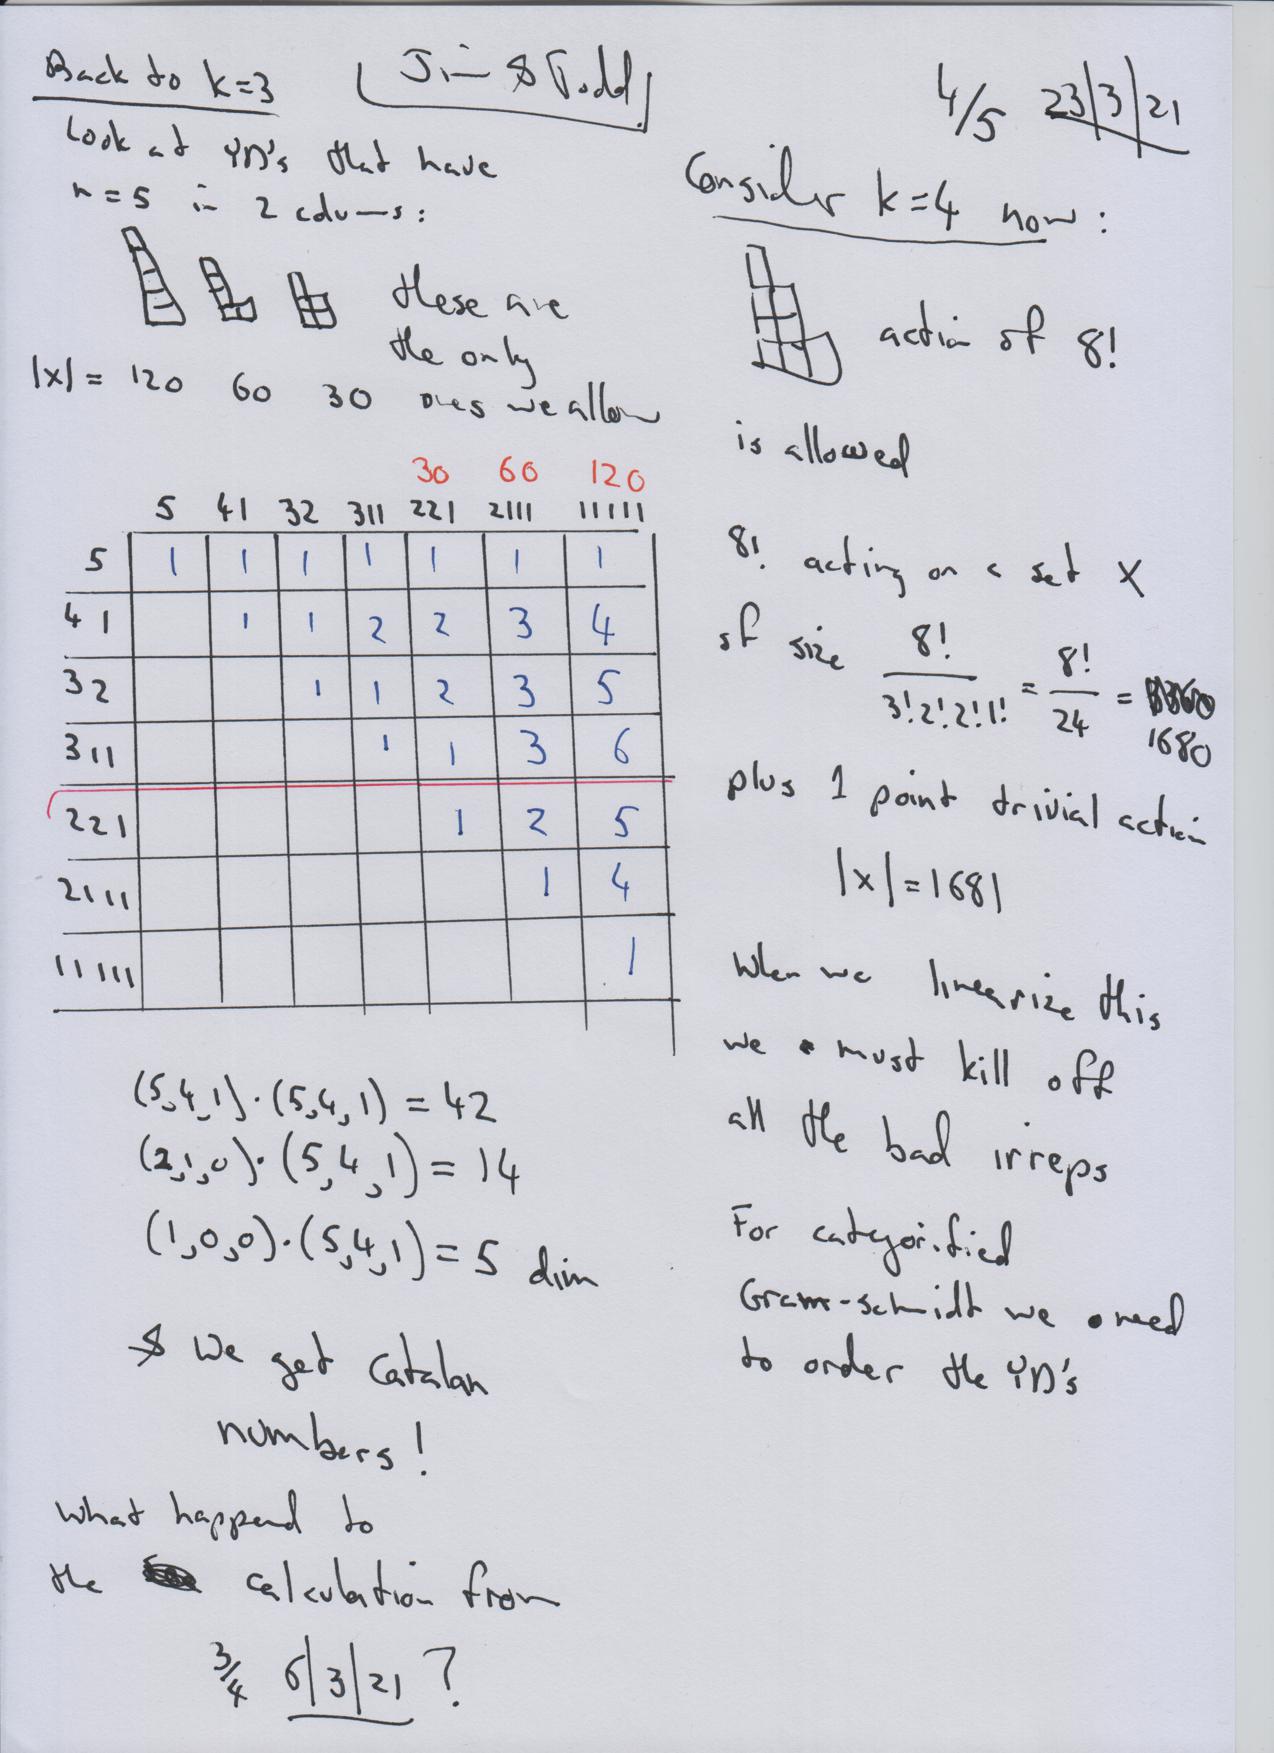 Back to k=3
Jim & Todd
4/5 23/3/21
Look at YD's that have
n=5 in 2 columns:
these are
the only
ones we allow
|x| = 120 60 30
30 60 120
5 41 32 311 221 2111 11111
5 1 1 1 1 1 1 1
41 1 1 2 2 3 4
32 1 1 2 3 5
311 1 1 3 6
221 1 2 5
2111 1 4
11111 1
(5,4,1)·(5,4,1) = 42
(2,1,0)·(5,4,1) = 14
(1,0,0)·(5,4,1) = 5 dim
& We get Catalan
numbers!
What happend to
the calculation from
3/4 6/3/21 ?
Consider k=4 now:
action of 8!
is allowed
8! acting on a set X
of size 8!/3!2!2!1! = 8!/24 =
1680
plus 1 point trivial action
|x| = 1681
When we linearize this
we must kill off
all the bad irreps
For categorified
Gram-schmidt we need
to order the YD's